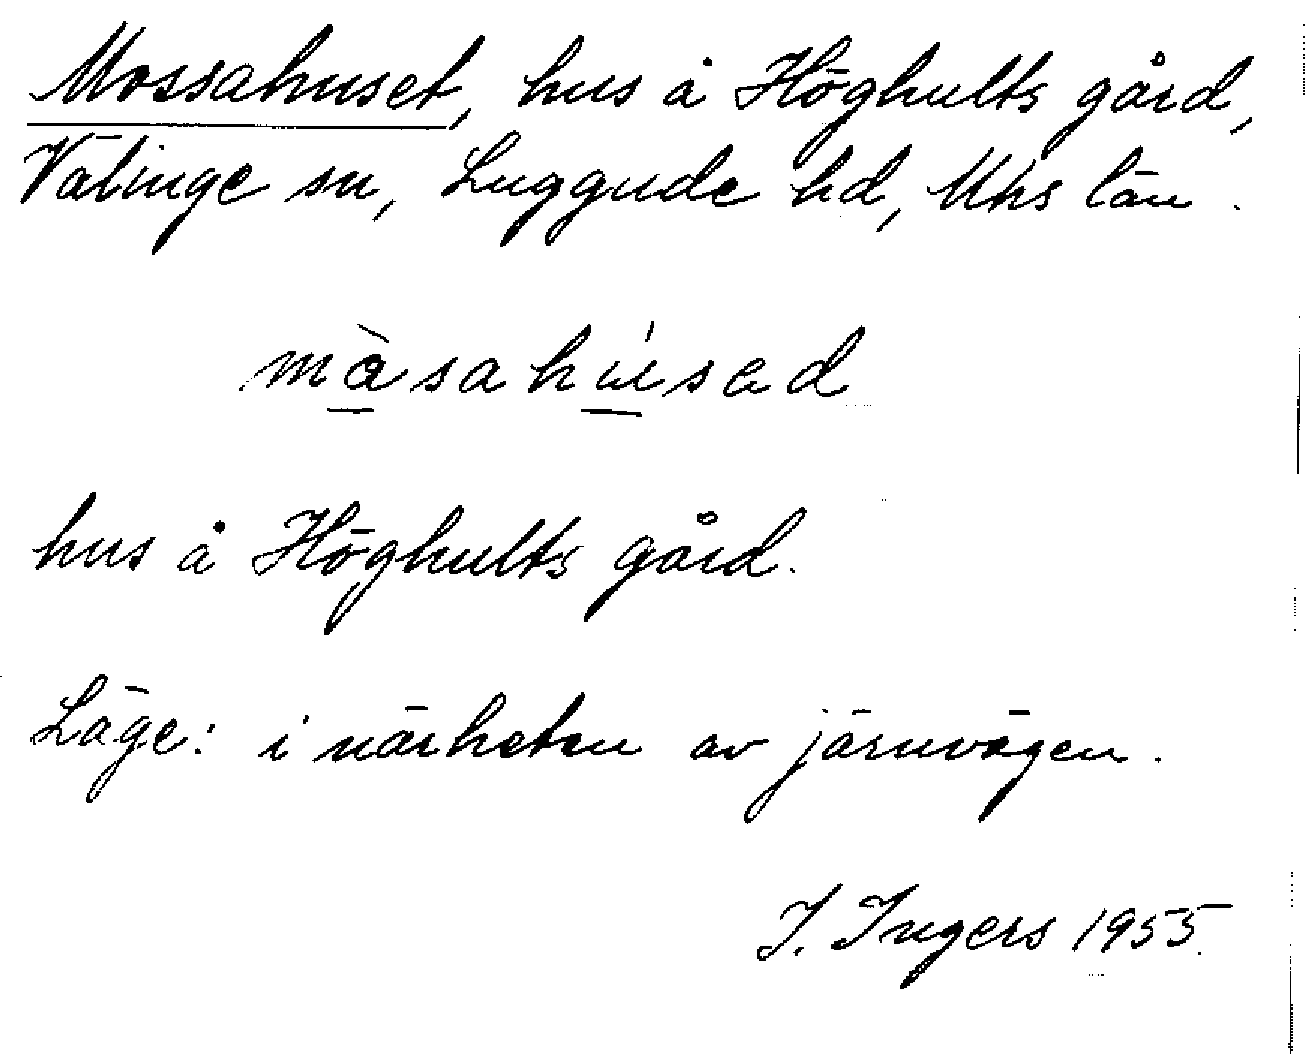 Mossahuset, hus å Höghults gård,
Välinge sn, Luggude hd, Mhs län.
màsahúsad
hus å Höghults gård.
Läge: i närheten av järnvägen.
I. Ingers 1955.